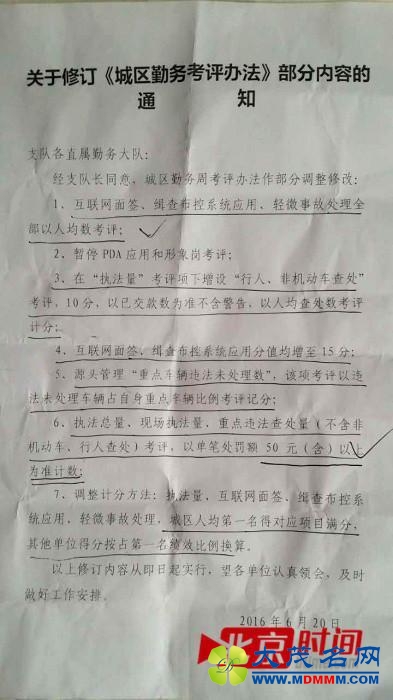 关于修订《城区勤务考评办法》部分内容的
通 知
支队各直属勤务大队:
经支队长同意,城区勤务周考评办法作部分调整修改:
1、互联网面签、缉查布控系统应用、轻微事故处理全
部以人均数考评;
2、暂停 PDA 应用和形象岗考评;
3、在“执法量”考评项下增设“行人、非机动车查处”
考评,10 分,以已交款数为准不含警告,以人均查处数考评
计分;
4、互联网面签、缉查布控系统应用分值均增至 15 分;
5、源头管理“重点车辆违法未处理数”,该项考评以违
法未处理车辆占自身重点车辆比例考评记分;
6、执法总量、现场执法量,重点违法查处量(不含非
机动车、行人查处)考评,以单笔处罚额 50 元(含)以上
为准计数;
7、调整计分方法:执法量,互联网面签、缉查布控系
统应用,轻微事故处理,城区人均第一名得对应项目满分,
其他单位得分按占第一名绩效比例换算。
以上修订内容从即日起实行,望各单位认真领会,及时
做好工作安排。
2016 年 6 月 20 日
北京时间
大茂名网
WWW.MDMMM.COM